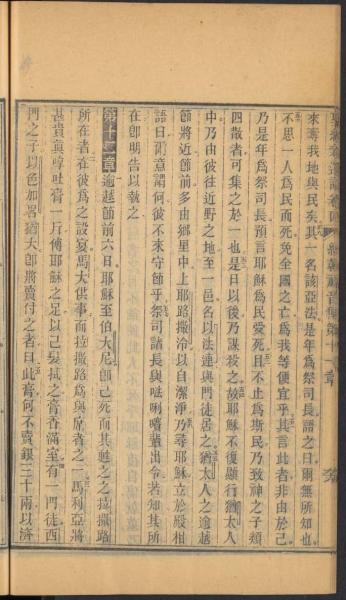 來奪我地與民矣其一名該亞法是年爲祭司長語之曰爾無所知也
不思一人爲民而死免全國之亡爲我等便宜乎其言此者非由於己
乃是年爲祭司長預言耶穌爲民受死且不止爲斯民乃致神之子類
四散者可集之於一也是日以後乃謀殺之故耶穌不復顯行猶太人
中乃由彼往近野之地至一邑名以法連與門徒居之猶太人之逾越
節將近節前多由鄉里中上耶路撒冷以自潔淨乃尋耶穌立於殿相
語曰爾意謂何彼不來守節乎祭司諸長與𠵽唎㘔輩出令若知其所
在卽明告以執之
第十二章逾越節前六日耶穌至伯大尼卽已死而其甦之之拉撒路
所在者在彼爲之設宴馬大供事而拉撒路爲與席者之一馬利亞將
甚貴真哪吐膏一斤傅耶穌之足以己髮拭之膏香滿室有一門徒西
門之子以色加畧猶大卽將賣付之者曰此膏何不賣銀三十兩以濟